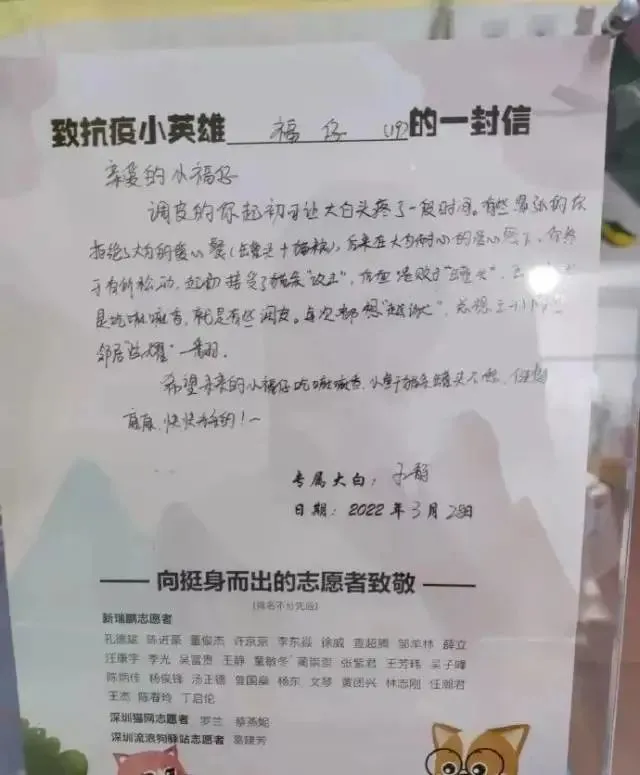 致抗疫小英雄 福仔 (19) 的一封信
亲爱的小福仔
调皮的你起初可让大白头疼了一段时间。有些紧张的你
拒绝了大白的爱心餐(罐头+猫粮),后来在大白耐心的爱心下,你终
于有所松动,起初接受了猫条"攻击",你在 败于"罐头",
是吃嘛嘛香,就是有些调皮。每次都想"越狱",总想
邻居"炫耀"一番。
希望未来的小福仔吃嘛嘛香,小鱼干猫条罐头不愁,健
康康,快快乐乐的!~
专属大白:
日期:2022年3月28日
向挺身而出的志愿者致敬
(排名不分先后)
新瑞鹏志愿者
孔德斌 陈进豪 董俊杰 许京京 李东焱 徐威 查超腾 邹芊林 薛立
汪康宇 李光 吴富贵 王静 董敏冬 蔺崇崇 张紫君 王芳玮 吴子峰
陈炳佳 杨俊锋 汤正德 曾国燊 杨东 文琴 黄团兴 林志刚 任瀚君
王杰 陈春玲 丁启伦
深圳猫网志愿者 罗兰 蔡燕妮
深圳流浪狗驿站志愿者 葛建芳